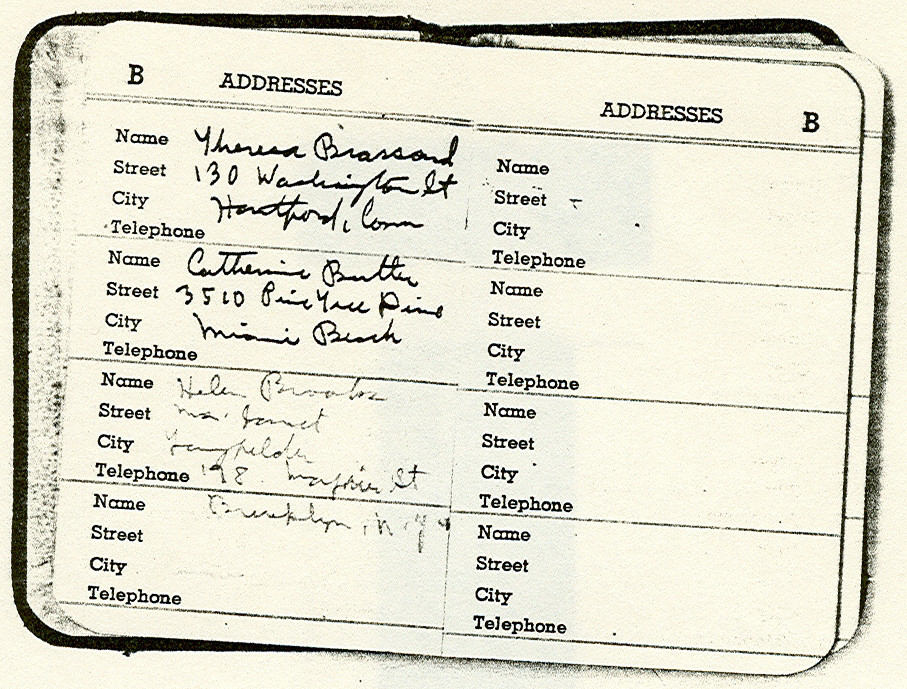 B ADDRESSES
Name Theresa Brassard
Street 130 Washington St
City Hartford, Conn
Telephone
Name Catherine Butler
Street 3510 Pine Tree Drive
City Miami Beach
Telephone
Name Helen Brooks
Street
City
Telephone 198 St
Name Brooklyn, N.Y.
Street
City
Telephone
ADDRESSES B
Name
Street
City
Telephone
Name
Street
City
Telephone
Name
Street
City
Telephone
Name
Street
City
Telephone